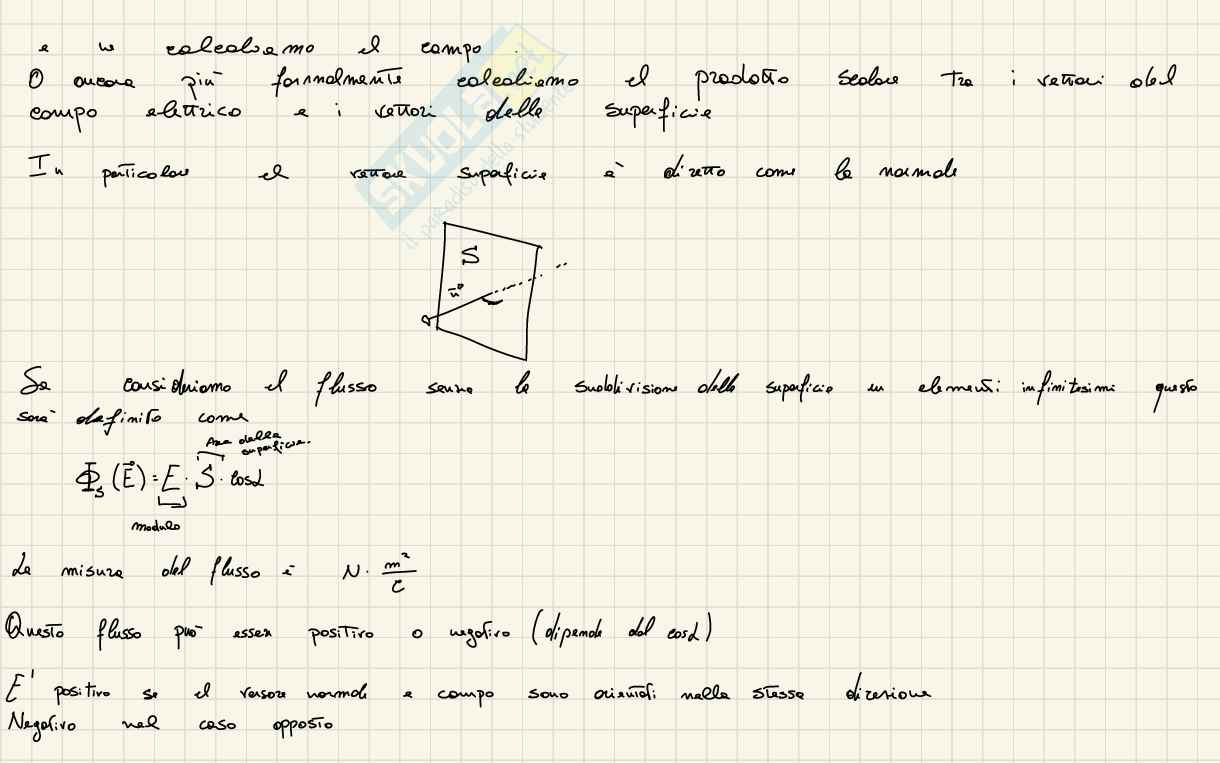 e lo calcoliamo il campo.
O ancora più formalmente calcoliamo il prodotto scalare tra i vettori del
campo elettrico e i vettori della superficie
SKUOLA.net
il paradiso dello studente
In particolare il vettore superficie è diretto come la normale
S
n
Se consideriamo il flusso senza la suddivisione della superficie in elementi infinitesimi questo
sarà definito come
Area della
superficie.
Φs (E⃗) = E · S · cosα
modulo
La misura del flusso è N · m²/C
Questo flusso può essere positivo o negativo (dipende dal cosα)
E' positivo se il versore normale e campo sono orientati nella stessa direzione
Negativo nel caso opposto